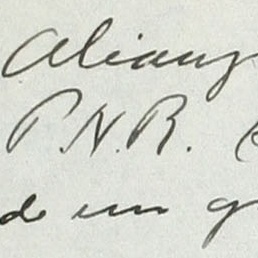 Alianz
P.N.R. (
de un g